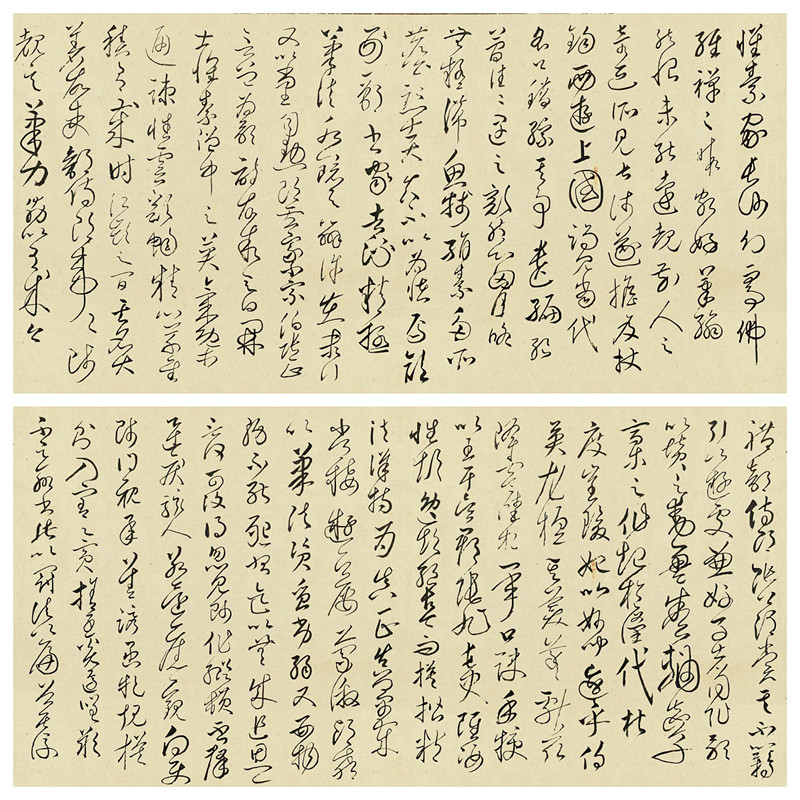 懷素家長沙幼而事佛
經禪之暇頗好筆翰
然恨未能遠覩前人之
奇迹所見甚淺遂擔笈杖
錫西遊上國謁見當代
名公錯綜其事遺編絕
簡往往遇之豁然心胸略
無疑滯魚牋絹素多所
塵點士大夫不以為怪焉顏
刑部書家者流精極
筆法水鏡之辨許在末行
又以尚書司勳郎盧象小宗伯張正
言曾為歌詩故敘之曰開
士懷素僧中之英氣概
通疎性靈豁暢精心草聖
積有歲時江嶺之間其名大
著故吏部侍郎韋公陟
覩其筆力勗以有成今
禮部侍郎張公謂賞其不羈
引以遊處兼好事者同作歌
以贊之動盈卷軸夫草
稾之作起於漢代杜
度崔瑗始以妙聞迨乎伯
英尤擅其美羲獻茲
降虞陸相承口訣手授
以至于吳郡張旭長史雖姿
性顛逸超絕古今而模楷精
法詳特為真正真卿早
歲常接遊居屢蒙激昂教
以筆法資質劣弱又嬰物
務不能懇習迄以無成追思一
言何可復得忽見師作縱橫不羣
迅疾駭人若還舊觀向使
師得親承善誘函挹規模
則入室之賓捨子奚適嗟歎
不足聊書此以冠諸篇首